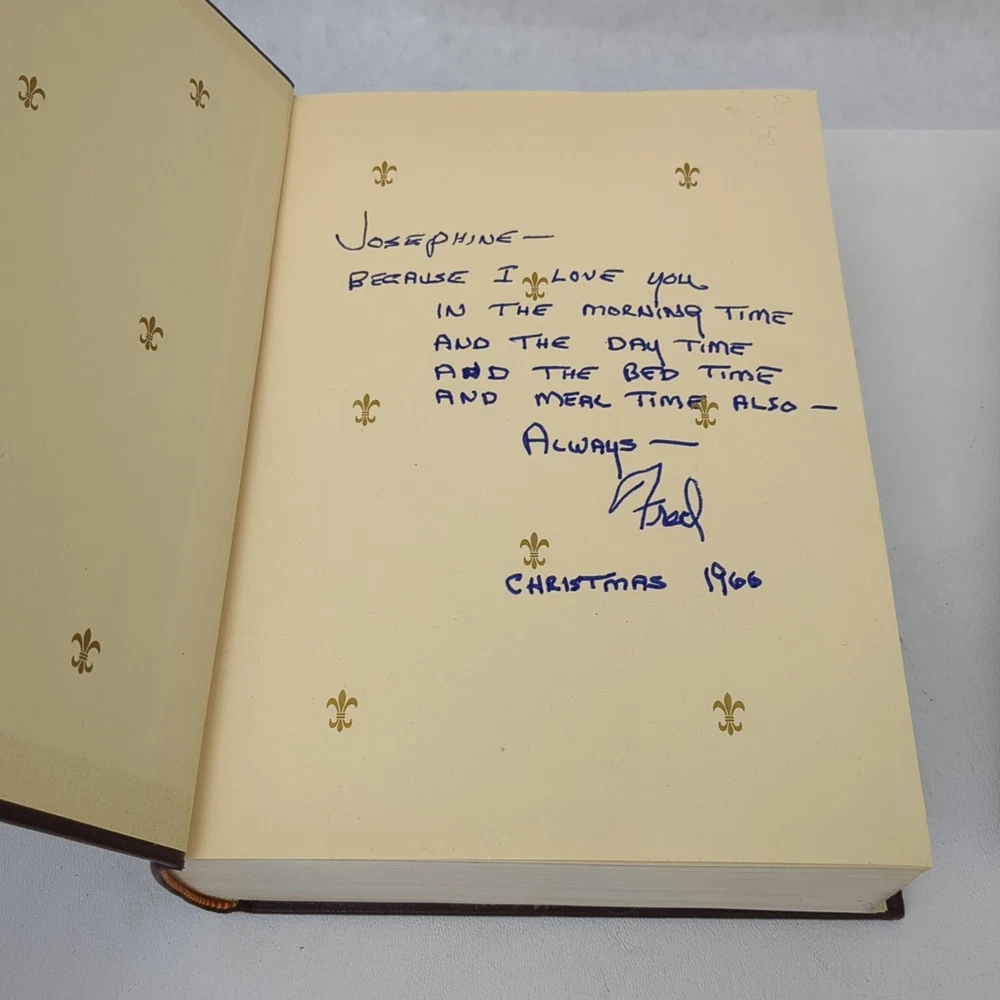 JOSEPHINE —
BECAUSE I LOVE YOU
IN THE MORNING TIME
AND THE DAY TIME
AND THE BED TIME
AND MEAL TIME ALSO —
ALWAYS —
Fred
CHRISTMAS 1966